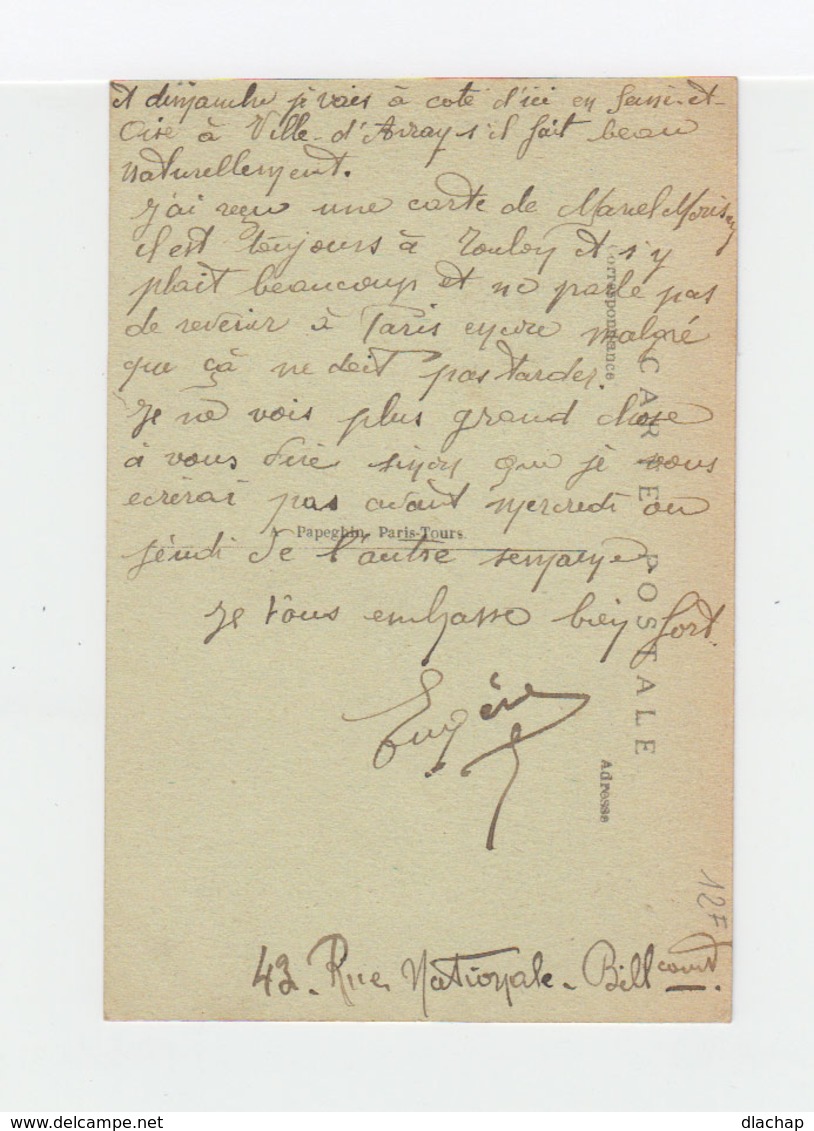 et dimanche je vais à coté d'ici en Seine-et-
Oise à Ville-d'Avray s'il fait beau
naturellement.
J'ai reçu une carte de Marcel
il est toujours à Toulon et s'y
plait beaucoup et ne parle pas
de revenir à Paris encore malgré
que çà ne doit pas tarder.
Je ne vois plus grand chose
à vous dire sinon que je vous
écrirai pas avant mercredi ou
jeudi de l'autre semaine.
Je vous embrasse bien fort.
Eugène
43. Rue Nationale. Bill court
CARTE POSTALE
Correspondance
Adresse
A. Papeghin, Paris-Tours.
12F
delcampe.net
dlachap